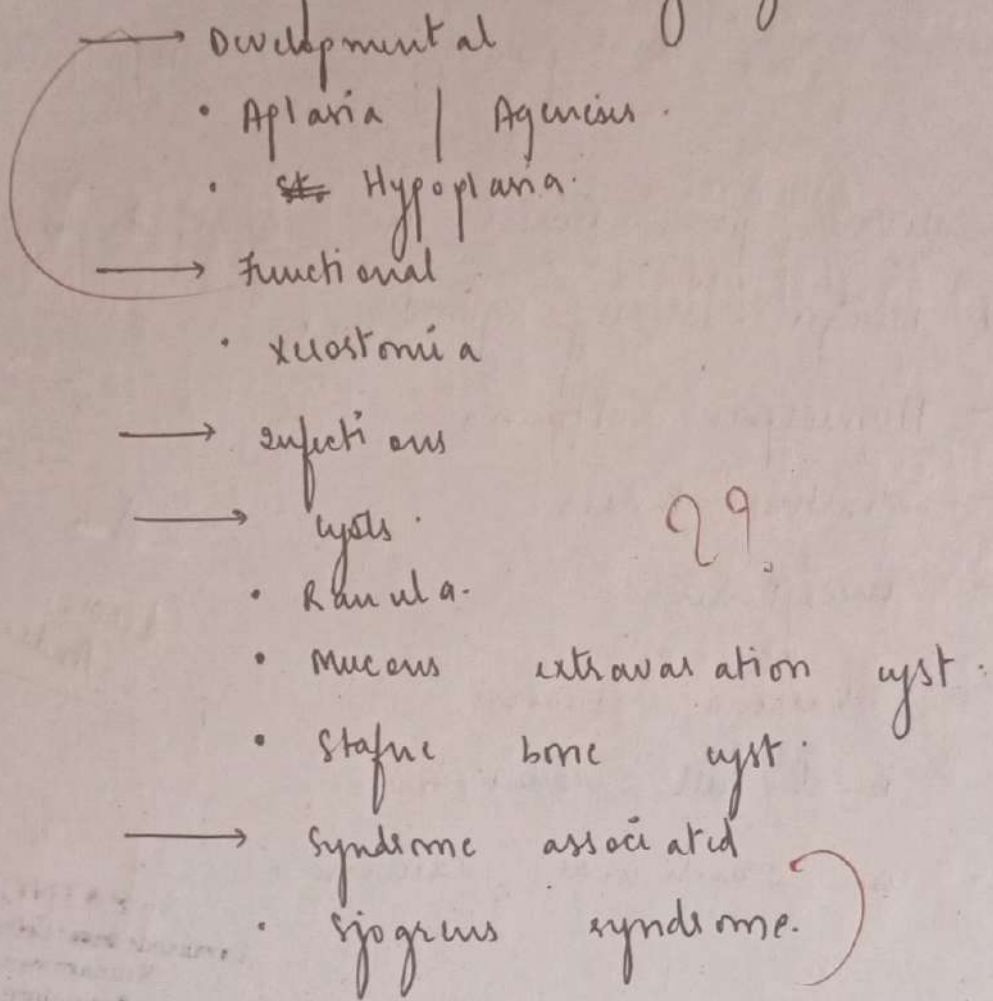 → Developmental
• Aplasia | Agenesis.
• Hypoplasia.
→ Functional
• Xerostomia
→ Infections
→ Cysts.
• Ranula.
• Mucous extravasation cyst.
• Stafne bone cyst.
→ Syndrome associated
• Sjogrens syndrome.